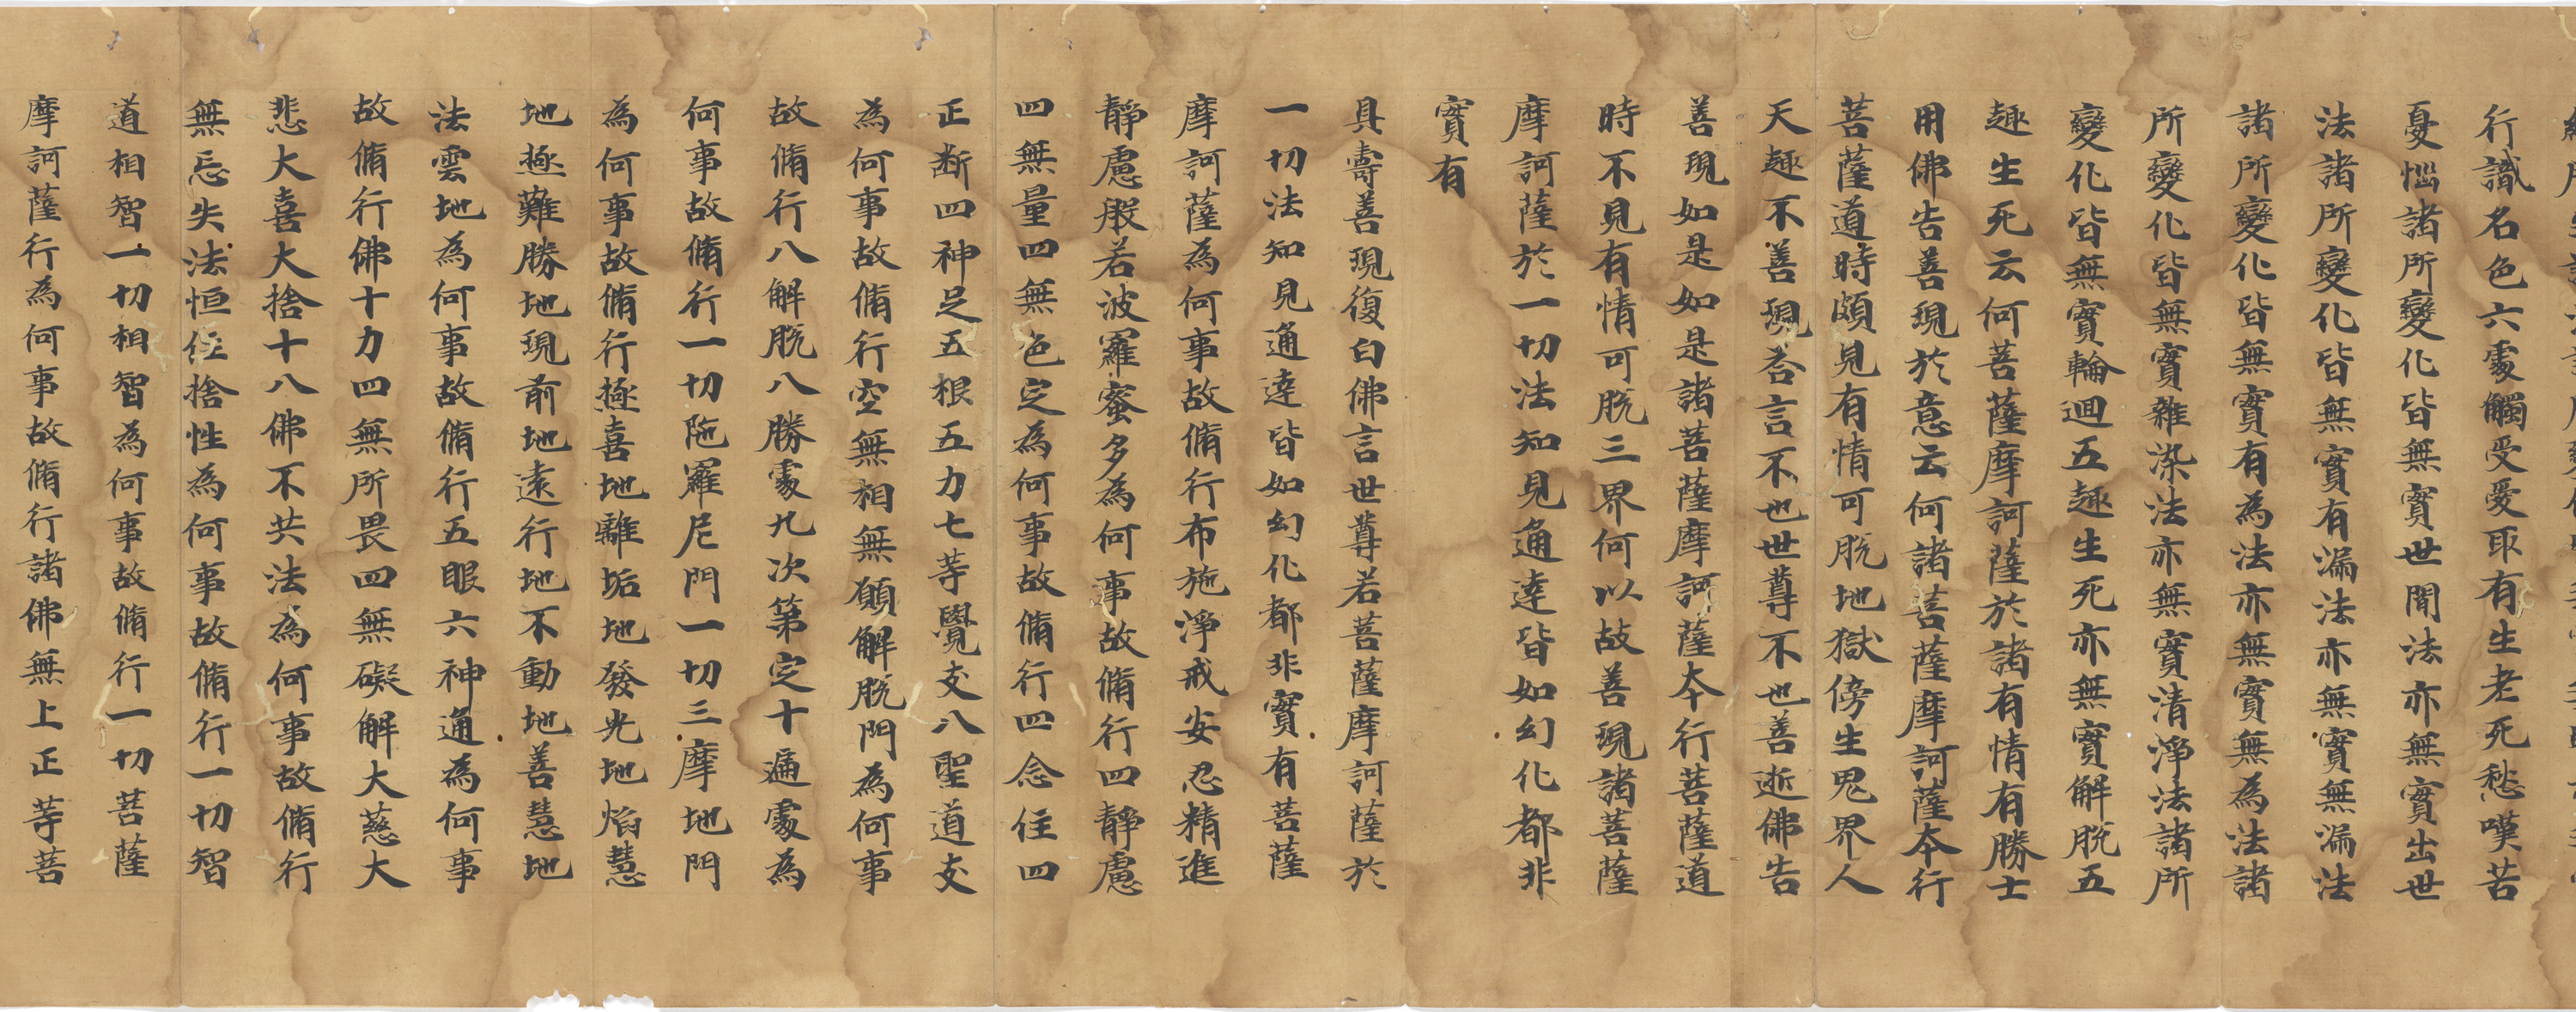 行識名色六處觸受愛取有生老死愁嘆苦
憂惱諸所變化皆無實世間法亦無實出世
法諸所變化皆無實有漏法亦無實無漏法
諸所變化皆無實有為法亦無實無為法諸
所變化皆無實雜染法亦無實清淨法諸所
變化皆無實輪迴五趣生死亦無實解脫五
趣生死云何菩薩摩訶薩於諸有情有勝士
用佛告善現於意云何諸菩薩摩訶薩夲行
菩薩道時頗見有情可脫地獄傍生鬼界人
天趣不善現荅言不也世尊不也善逝佛告
善現如是如是諸菩薩摩訶薩夲行菩薩道
時不見有情可脫三界何以故善現諸菩薩
摩訶薩於一切法知見通達皆如幻化都非
實有
具壽善現復白佛言世尊若菩薩摩訶薩於
一切法知見通達皆如幻化都非實有菩薩
摩訶薩為何事故脩行布施淨戒安忍精進
靜慮般若波羅蜜多為何事故脩行四靜慮
四無量四無色定為何事故脩行四念住四
正斷四神足五根五力七等覺支八聖道支
為何事故脩行空無相無願解脫門為何事
故脩行八解脫八勝處九次第定十遍處為
何事故脩行一切陁羅尼門一切三摩地門
為何事故脩行極喜地離垢地發光地焰慧
地極難勝地現前地遠行地不動地善慧地
法雲地為何事故脩行五眼六神通為何事
故脩行佛十力四無所畏四無礙解大慈大
悲大喜大捨十八佛不共法為何事故脩行
無忘失法恒住捨性為何事故脩行一切智
道相智一切相智為何事故脩行一切菩薩
摩訶薩行為何事故脩行諸佛無上正等菩